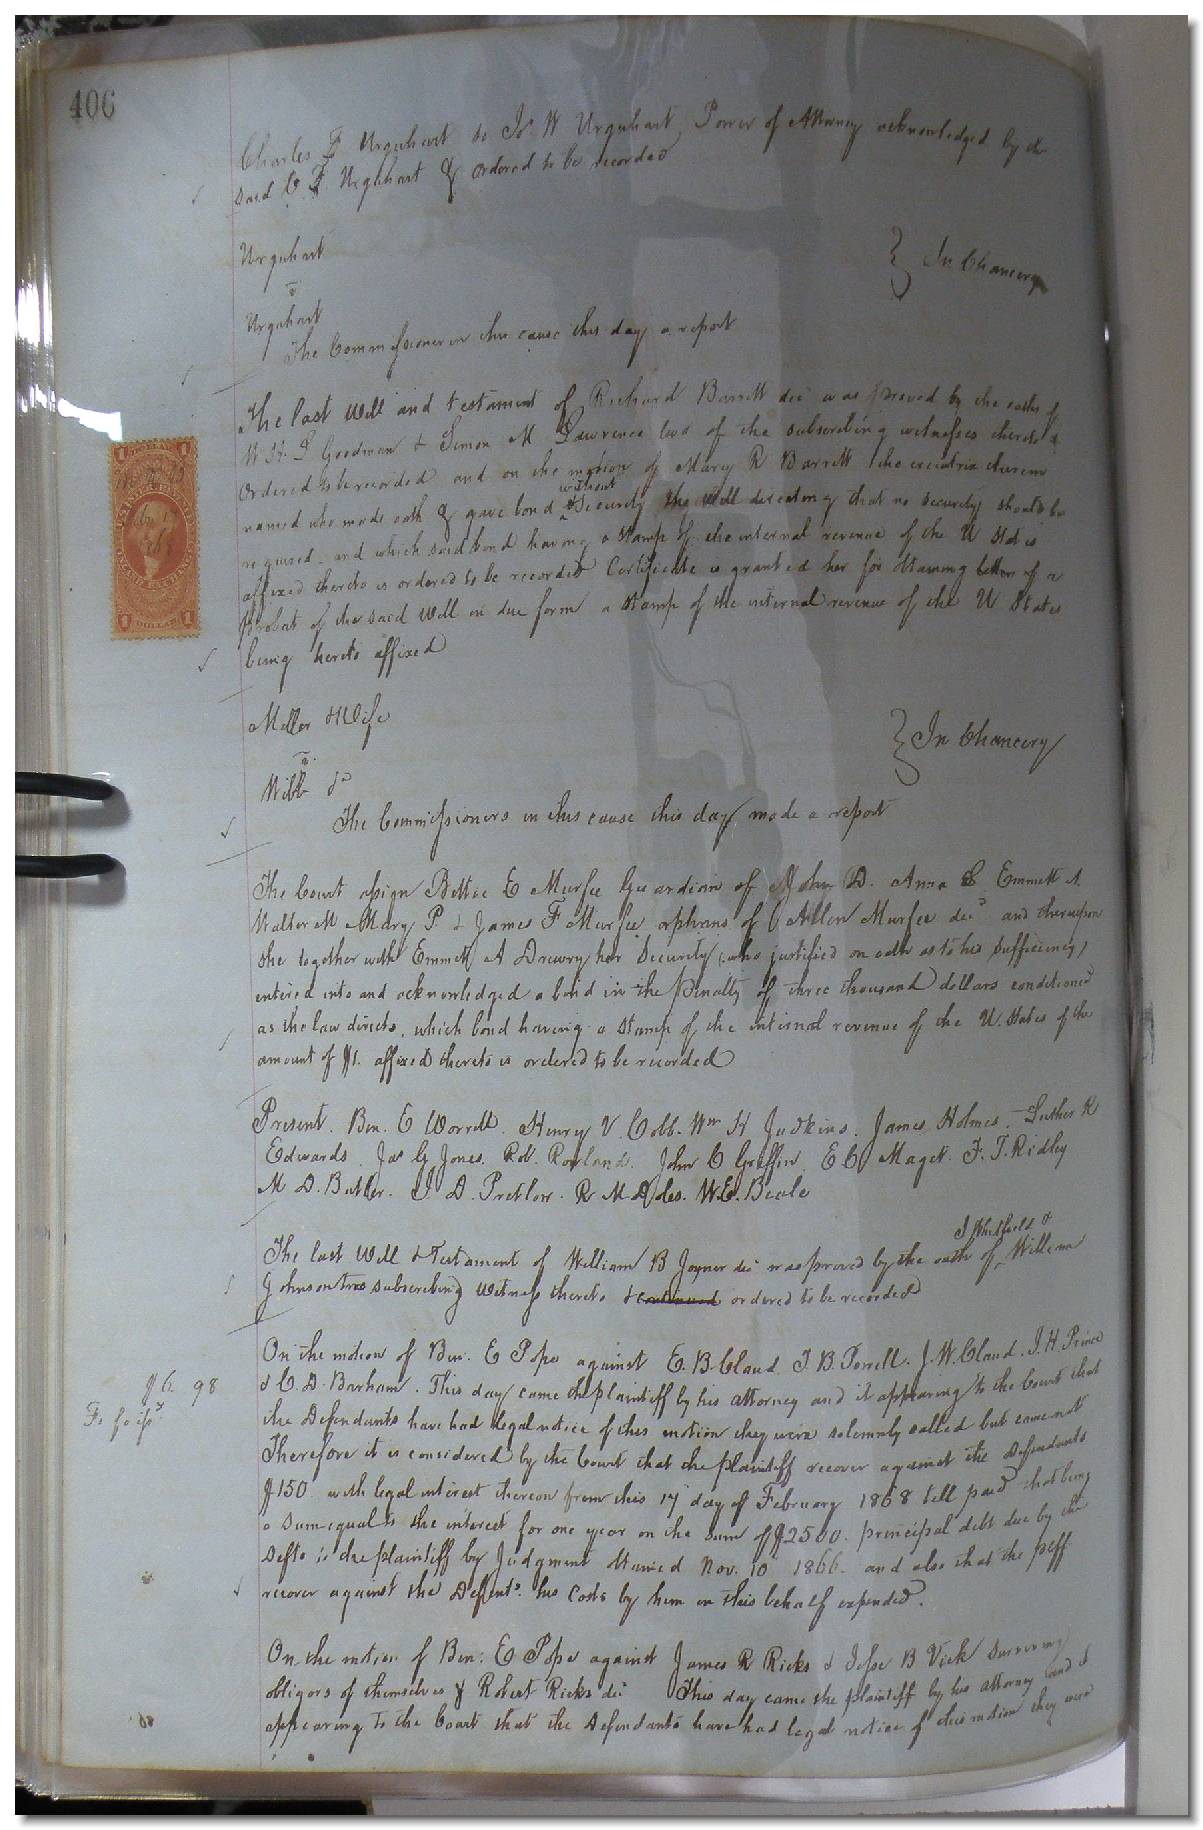 406
Charles F Urquhart to Jos. W Urquhart Power of Attorney acknowledged by the
said C F Urquhart & ordered to be recorded
Urquhart
v
Urquhart
} In Chancery
The Commissioner in this cause this day a report
The last Will and testament of Richard Barrett decd was proved by the oaths of
W H. S Goodman & Simon M Lawrence two of the subscribing witnesses thereto &
Ordered to be recorded and on the motion of Mary R Barrett the executrix therein
named who made oath & gave bond without Security the will directing that no security should be
required. and which said bond having a stamp of the internal revenue of the U States
affixed thereto is ordered to be recorded Certificate is granted her for obtaining letters of a
probat of the said Will in due form a stamp of the internal revenue of the U States
being hereto affixed
1 1
DOLLAR
Miller & Wife
v
Webb &c
} In Chancery
The Commissioners in this cause this day made a report
The Court assign Bettie E Murfee Guardian of John D. Anna Emmett A.
Walter M Mary P. & James F Murfee orphans of Allen Murfee decd and thereupon
she together with Emmett A Drewry her Security (who justified on oath as to his sufficiency)
entered into and acknowledged a bond in the Penalty of three thousand dollars conditioned
as the law directs, which bond having a stamp of the internal revenue of the U. States of the
amount of $1. affixed thereto is ordered to be recorded
Present. Ben. E Worrell. Henry V. Cobb. Wm H Judkins. James Holmes. Luther R
Edwards. Jas G Jones. Rob. Rowland. John C Griffin. E C Maget. F. T. Ridley
M D. Butler. J. D. Pretlow. R M Boles. W. E. Beale
The last Will & Testament of William B Joyner decd was proved by the oath of J Whitfield & William
G Johnson two subscribing Witness thereto & continued ordered to be recorded
$6. 98
Fi fa issd.
On the motion of Ben. E Pope against E. B. Claud. T. B. Ferrell. J. W. Claud. J. H. Prince
& C. D. Barham. This day came the plaintiff by his attorney and it appearing to the Court that
the Defendants have had legal notice of this motion they were solemnly called but came not
Therefore it is considered by the Court that the plaintiff recover against the Defendants
$150 with legal interest thereon from this 17 day of February 1868 till paid that being
a sum equal to the interest for one year on the sum of $2500. principal debt due by the
Defts to the plaintiff by Judgment obtained Nov. 10 1866. and also that the plff
recover against the Defents. his costs by him in this behalf expended.
On the motion of Ben. E Pope against James R Ricks & Jesse B Vick surviving
obligors of themselves & Robert Ricks decd This day came the plaintiff by his attorney and it
appearing to the Court that the Defendants have had legal notice of this motion they were